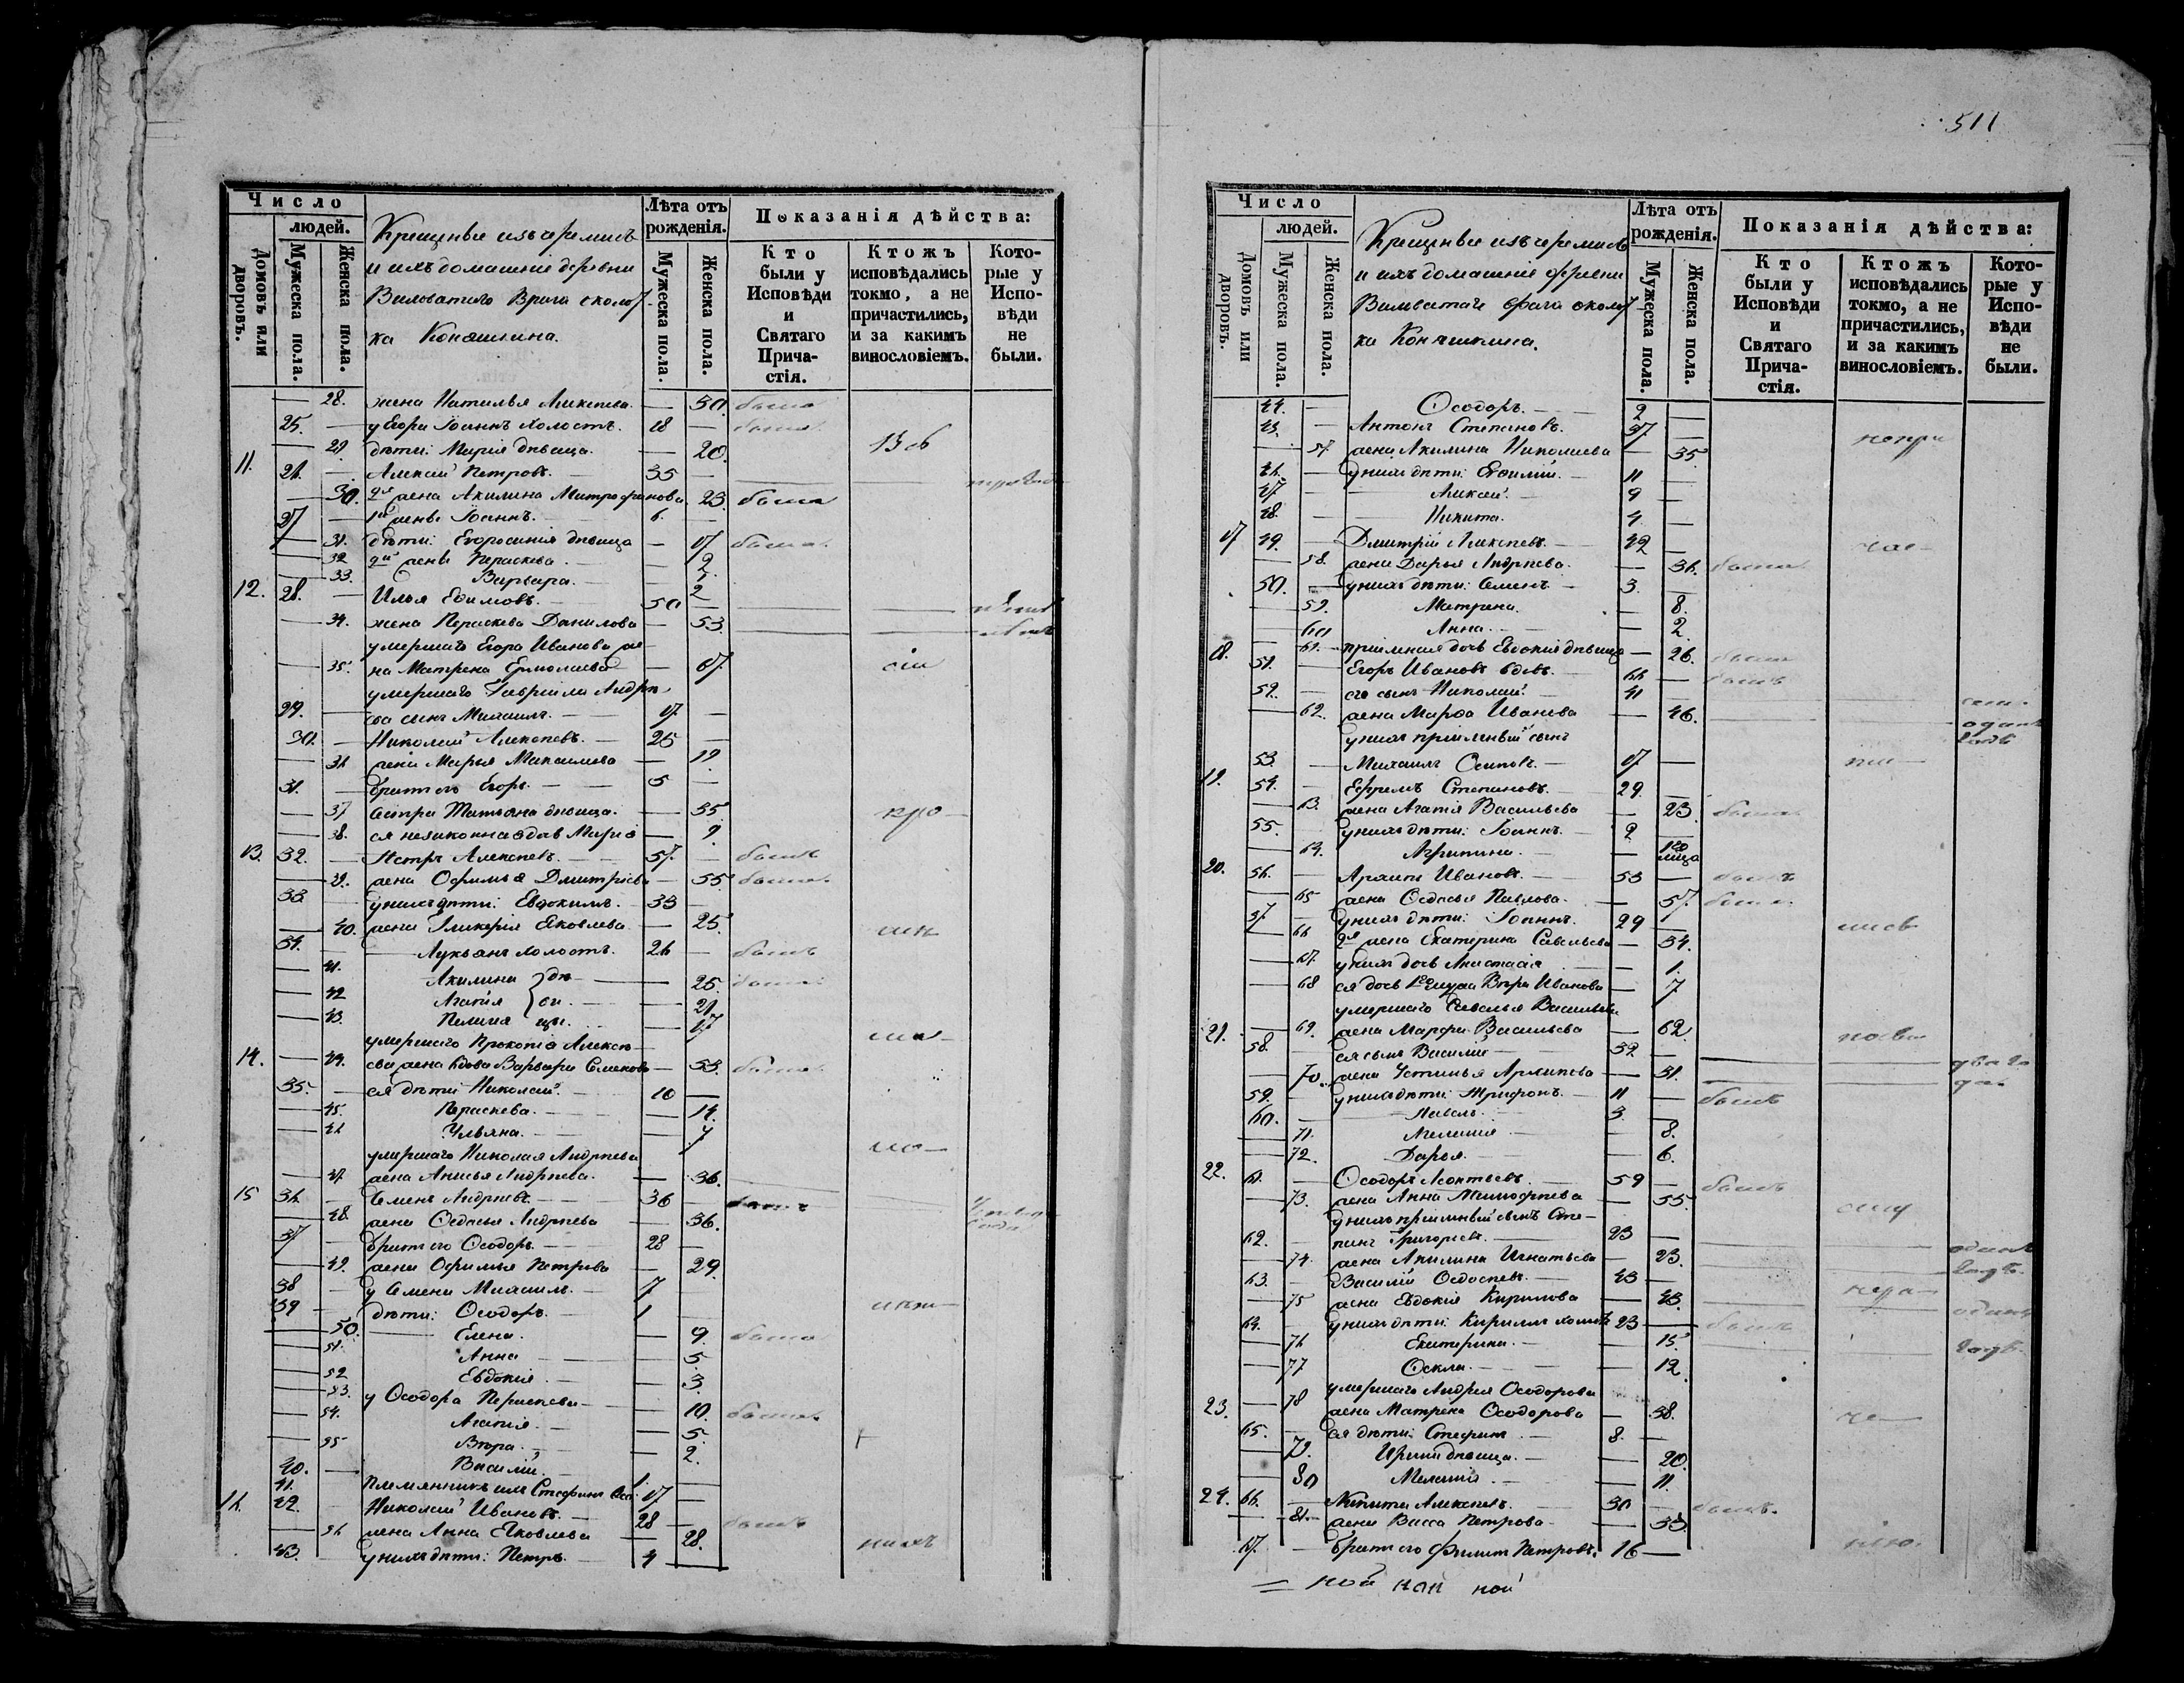 Число
людей.
Домовъ или дворовъ.
Мужеска пола.
Женска пола.
Крещеные изъ черемисъ
и ихъ домашніе деревни
Виловатаго Врага околод-
ка Коняшкина.
Лѣта отъ рожденія.
Мужеска пола.
Женска пола.
Показанія дѣйства:
Кто были у Исповѣди и Святаго Прича-стія.
Ктожъ исповѣдались токмо, а не причастились, и за какимъ винословіемъ.
Кото-рые у Испо-вѣди не были.
28. жена Наталья Алексѣева. 50. была
25. у Егора Іоаннъ холостъ. 18
29. дѣти: Марія дѣвица. 20.
11. 26. Алексѣй Петровъ. 35
30. 2я жена Акилина Митрофанова 23. была
27 1й жены Іоаннъ. 6.
31. дѣти: Евфросинія дѣвица 17 была
32 2й жены Параскева. 9
33. Варвара. 2
12. 28. Илья Ефимовъ. 50
34. жена Параскева Данилова 53.
умершаго Егора Иванова же-
35. на Матрена Ермолаева 67.
умершаго Гавріила Андрѣ-
29. ева сынъ Михаилъ. 17.
30. Николай Алексѣевъ. 25
36 жена Марья Михаилова 19
31. братъ его Егоръ. 5
37 сестра Татьяна дѣвица. 35
38. ея незаконная дочь Марія 9.
13. 32. Петръ Алексѣевъ. 57. былъ
39. жена Офимья Дмитріева 55 была
33 у нихъ дѣти: Евдокимъ. 33
40. жена Гликерія Яковлева 25.
34. Лукьянъ холостъ. 26 былъ
41. Акилина дѣ- 25.
42 Агапія ви- 21
43. Пелагія цы. 17
умершаго Прокопія Алексѣ-
14. 44. ева жена вдова Варвара Семенова 53. была
35. ея дѣти Николай 10
45. Параскева. 14.
46 Ульяна. 7
умершаго Николая Андрѣева
47. жена Анисья Андрѣева. 36.
15 36. Семенъ Андрѣевъ 36
48. жена Ѳедосья Андрѣева 36.
37 братъ его Ѳеодоръ. 28
49. жена Офимья Петрова 29.
38 у Семена Михаилъ. 7
39 дѣти: Ѳеодоръ. 1
50. Елена. 9. была
51. Анна 5
52 Евдокія 3.
53. у Ѳеодора Параскева 10. была
54. Агапія. 5
55 Вѣра. 2.
40. Василій. 1.
41. Племянникъ ихъ Стефанъ 17
16. 42. Николай Ивановъ. 28 былъ
56 жена Анна Яковлева 28.
43. у нихъ дѣти: Петръ. 4
511
Число
людей.
Домовъ или дворовъ.
Мужеска пола.
Женска пола.
Крещеные изъ черемисъ
и ихъ домашніе деревни
Виловатаго врага околод-
ка Коняшкина.
Лѣта отъ рожденія.
Мужеска пола.
Женска пола.
Показанія дѣйства:
Кто были у Исповѣди и Святаго Прича-стія.
Ктожъ исповѣдались токмо, а не причастились, и за какимъ винословіемъ.
Кото-рые у Испо-вѣди не были.
44. Ѳеодоръ. 2
45. Антонъ Степановъ. 37.
57 жена Акилина Николаева 35
46. у нихъ дѣти: Евфимій. 11
47 Алексѣй. 9
48. Никита. 4
17 49. Дмитрій Алексѣевъ. 42
58. жена Дарья Андрѣева. 36. была
50. у нихъ дѣти: Семенъ 3.
59. Матрена. 8.
60 Анна. 2.
61. пріемная дочь Евдокія дѣвица 26. была
18. 51. Егоръ Ивановъ вдовъ. 66 былъ
52. его сынъ Николай 41
62. жена Марфа Иванова 46.
у нихъ пріемный сынъ
53. Михаилъ Осиповъ. 17
19. 54. Ефремъ Степановъ. 29.
63. жена Агапія Васильева 23. была
55. у нихъ дѣти: Іоаннъ. 2
64. Агрипина.
20. 56. Архипъ Ивановъ. 53 былъ
65 жена Ѳедосья Павлова. 57. была
57. у нихъ дѣти: Іоаннъ. 29
66 2я жена Екатерина Савельева 34.
67. у нихъ дочь Анастасія 1.
68 ея дочь Вѣра Иванова 7
умершаго Савелья Васильева
21. 69. жена Марфа Васильева 62.
58. ея сынъ Василій 32
70. жена Устинья Архипова 31.
59. у нихъ дѣти: Трифонъ. 11 былъ
60. Павелъ. 3
71. Меланія 8.
72. Дарья. 6.
22. 61. Ѳеодоръ Леонтьевъ. 59 былъ
73. жена Анна Тимофѣева 55.
у нихъ пріемный сынъ Сте-
62. панъ Григорьевъ. 23
74. жена Акилина Игнатьева 23.
63. Василій Ѳедосѣевъ. 43
75 жена Евдокія Кирилова 43.
64. у нихъ дѣти: Кириллъ холостъ 23 былъ
76 Екатерина. 15
77 Ѳекла. 12.
умершаго Андрея Ѳеодорова
23. 78 жена Матрена Ѳеодорова 38.
65. ея дѣти: Стефанъ 8.
79. Ирина дѣвица. 20.
80 Меланія. 11.
24. 66. Никита Алексѣевъ. 30 былъ.
81. жена Васса Петрова 33.
67. братъ его Филипъ Петровъ. 16